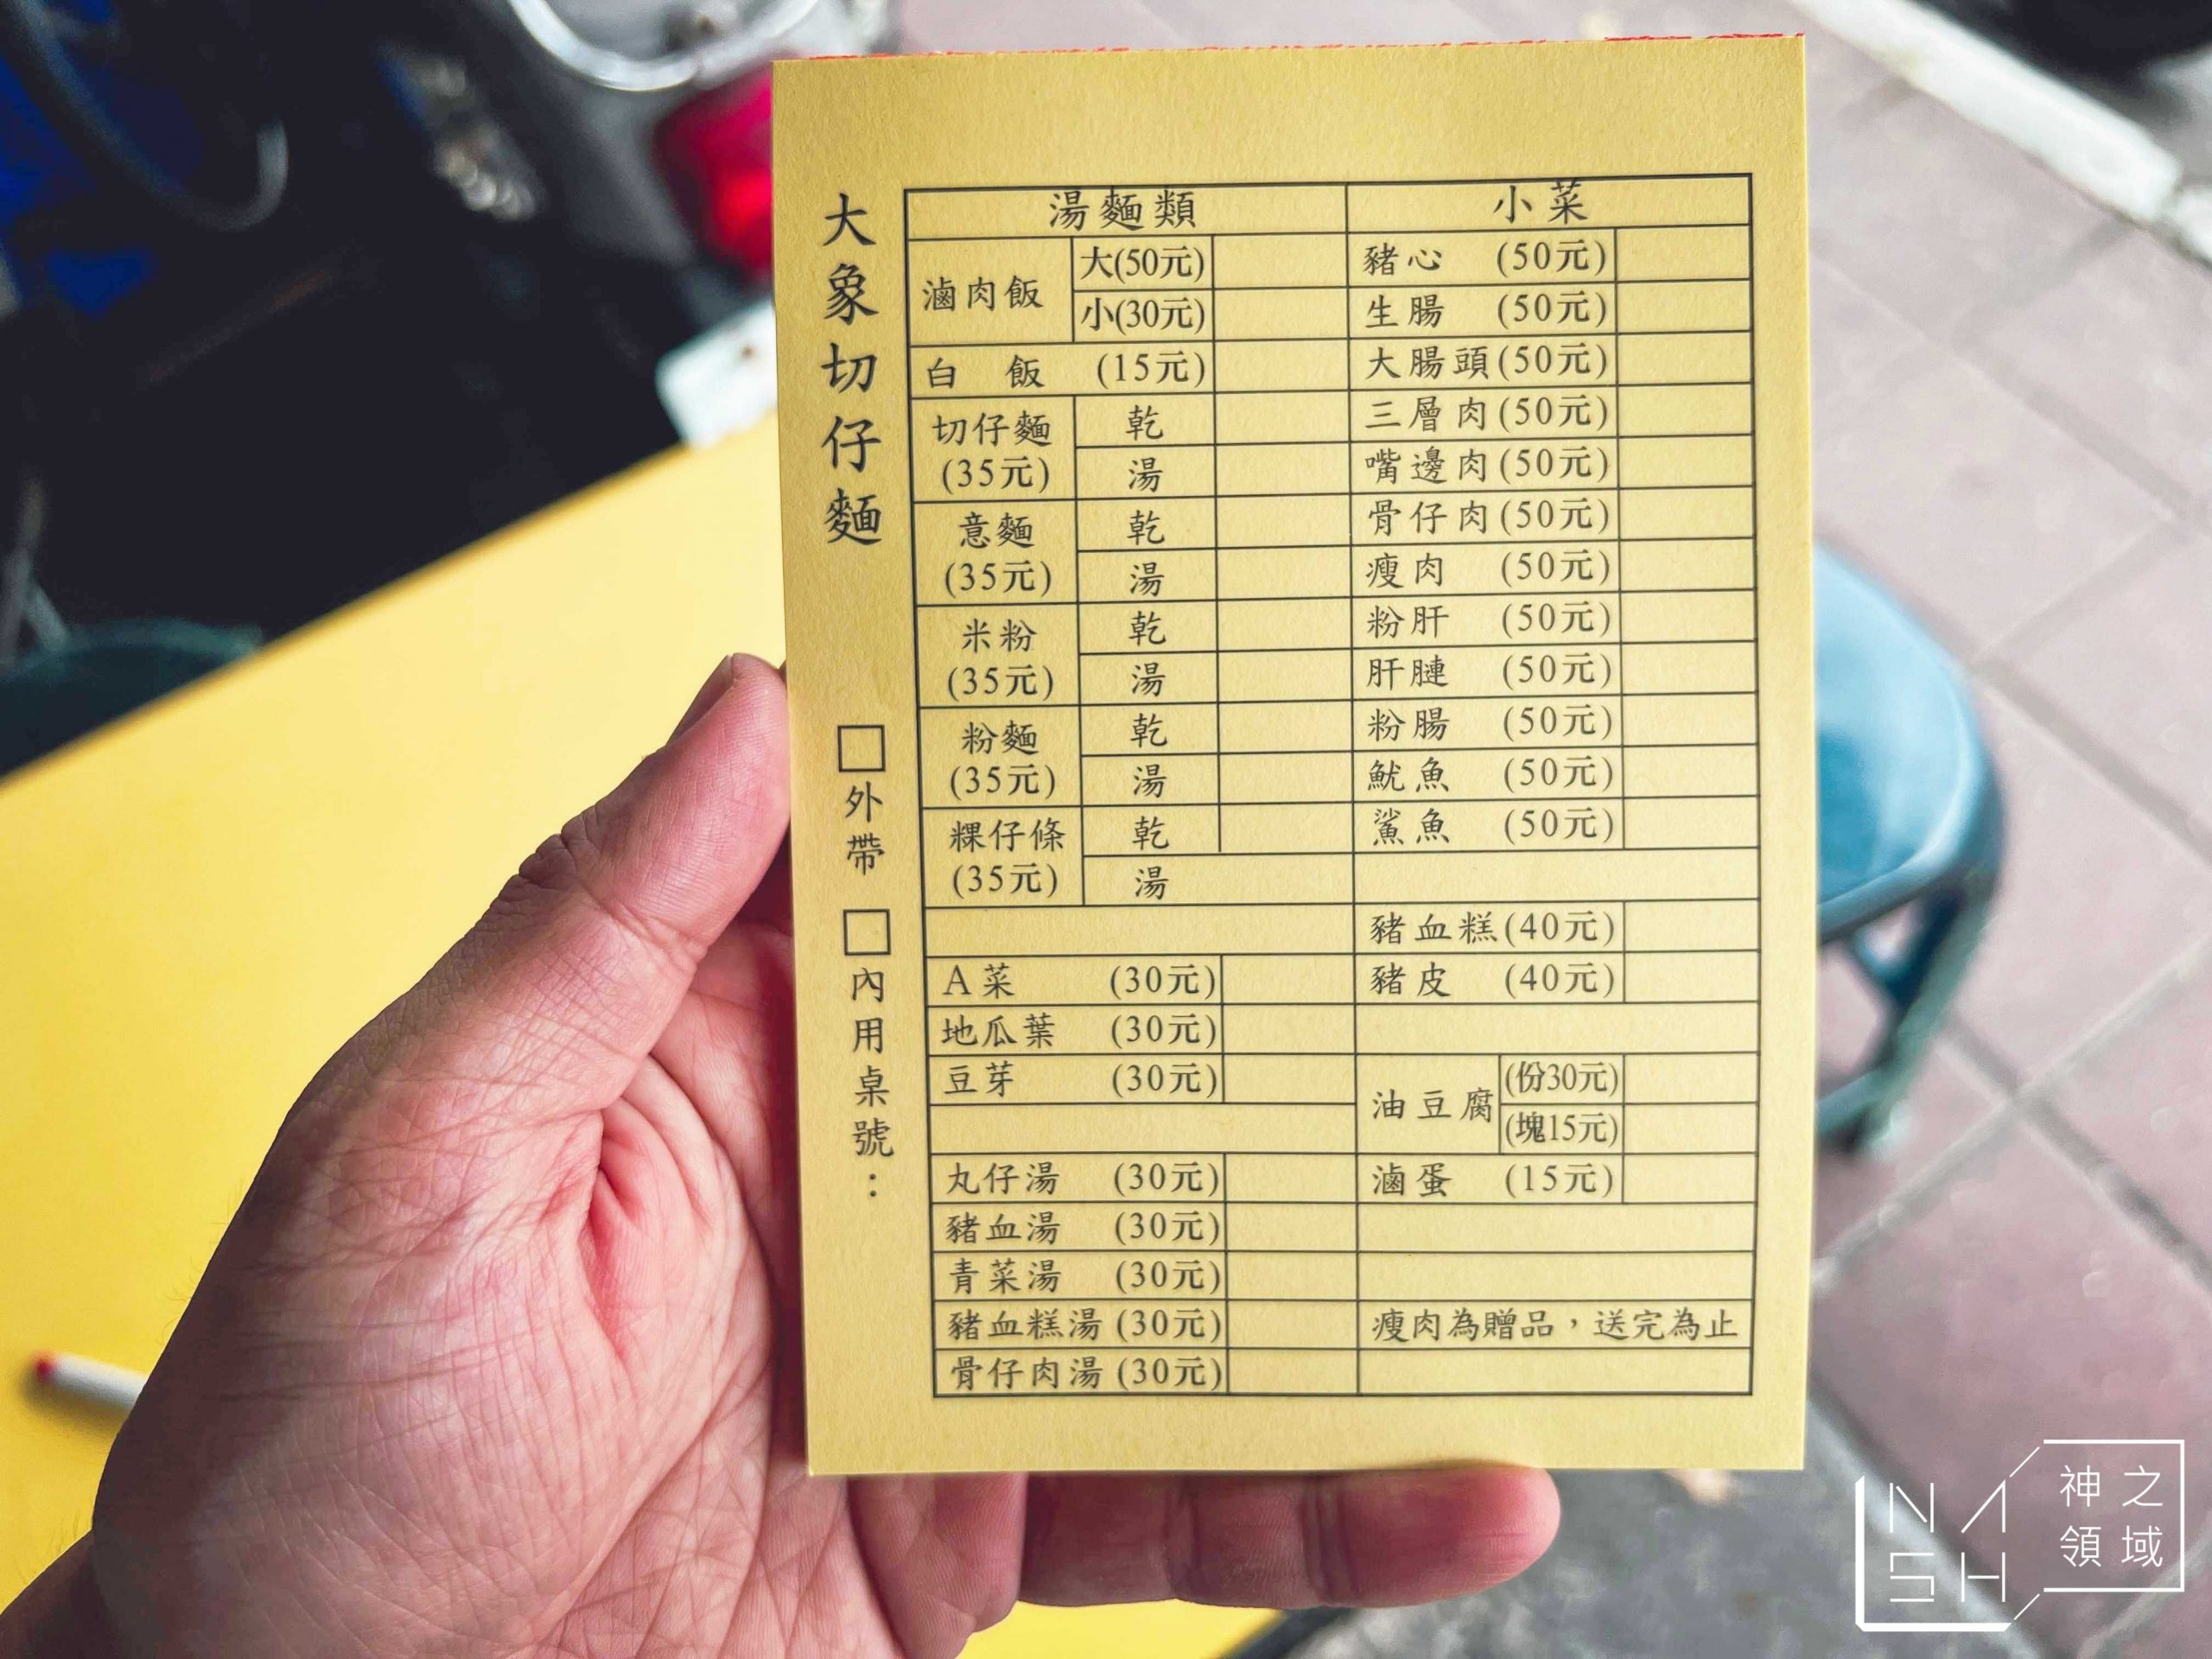 大象切仔麵
□外帶 □內用桌號：
湯麵類
滷肉飯 大(50元)
小(30元)
白飯 (15元)
切仔麵 (35元) 乾
湯
意麵 (35元) 乾
湯
米粉 (35元) 乾
湯
粉麵 (35元) 乾
湯
粿仔條 (35元) 乾
湯
A菜 (30元)
地瓜葉 (30元)
豆芽 (30元)
丸仔湯 (30元)
豬血湯 (30元)
青菜湯 (30元)
豬血糕湯 (30元)
骨仔肉湯 (30元)
小菜
豬心 (50元)
生腸 (50元)
大腸頭(50元)
三層肉(50元)
嘴邊肉(50元)
骨仔肉(50元)
瘦肉 (50元)
粉肝 (50元)
肝膁 (50元)
粉腸 (50元)
魷魚 (50元)
鯊魚 (50元)
豬血糕(40元)
豬皮 (40元)
油豆腐 (份30元)
(塊15元)
滷蛋 (15元)
瘦肉為贈品，送完為止
NASH
神之
領域